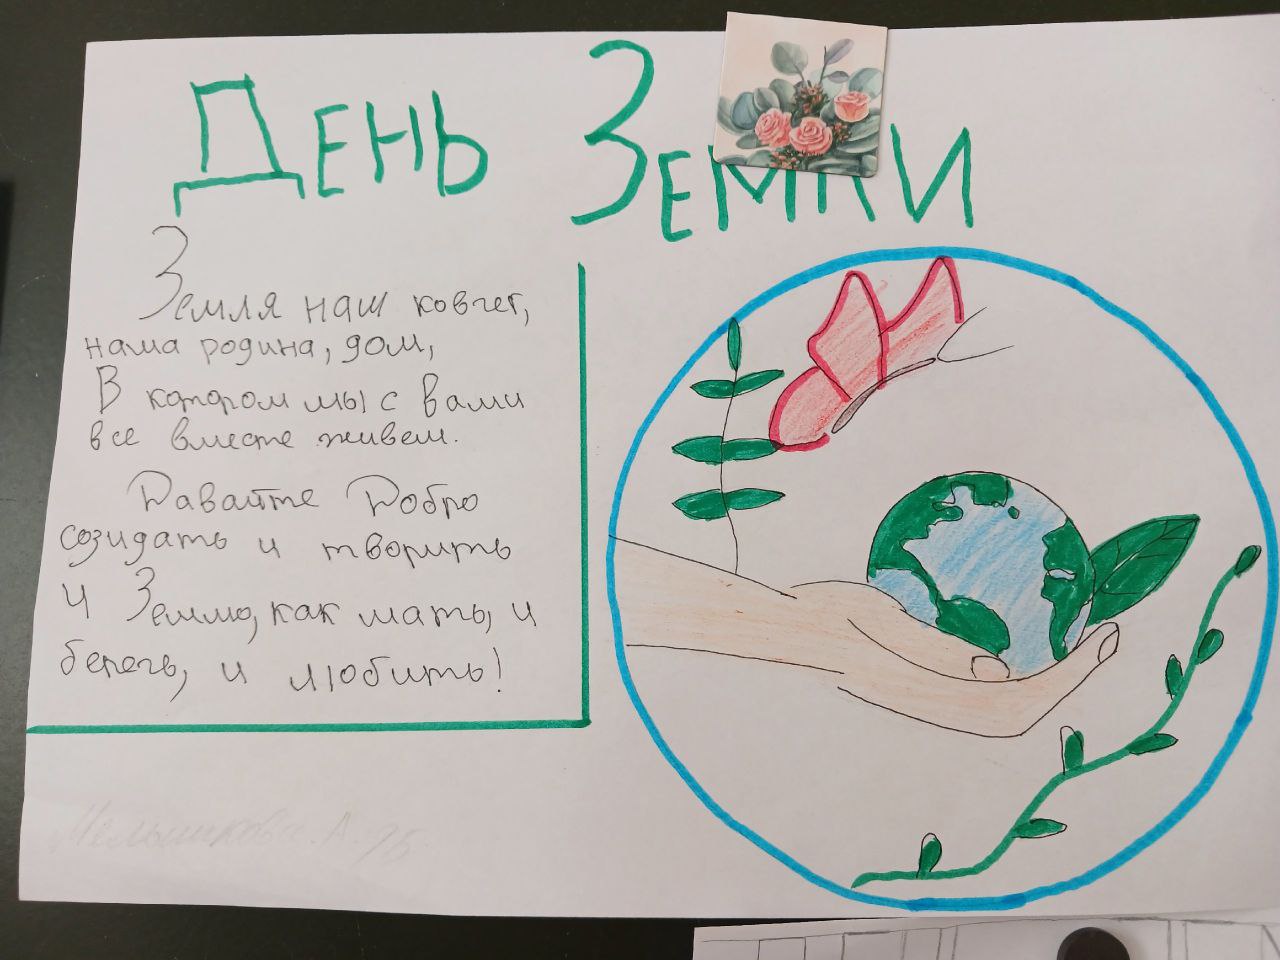 День Земли
Земля наш ковчег,
наша родина, дом,
В котором мы с вами
все вместе живем.
Давайте Добро
созидать и творить
и Землю, как мать, и
беречь, и любить!
Мельникова А.